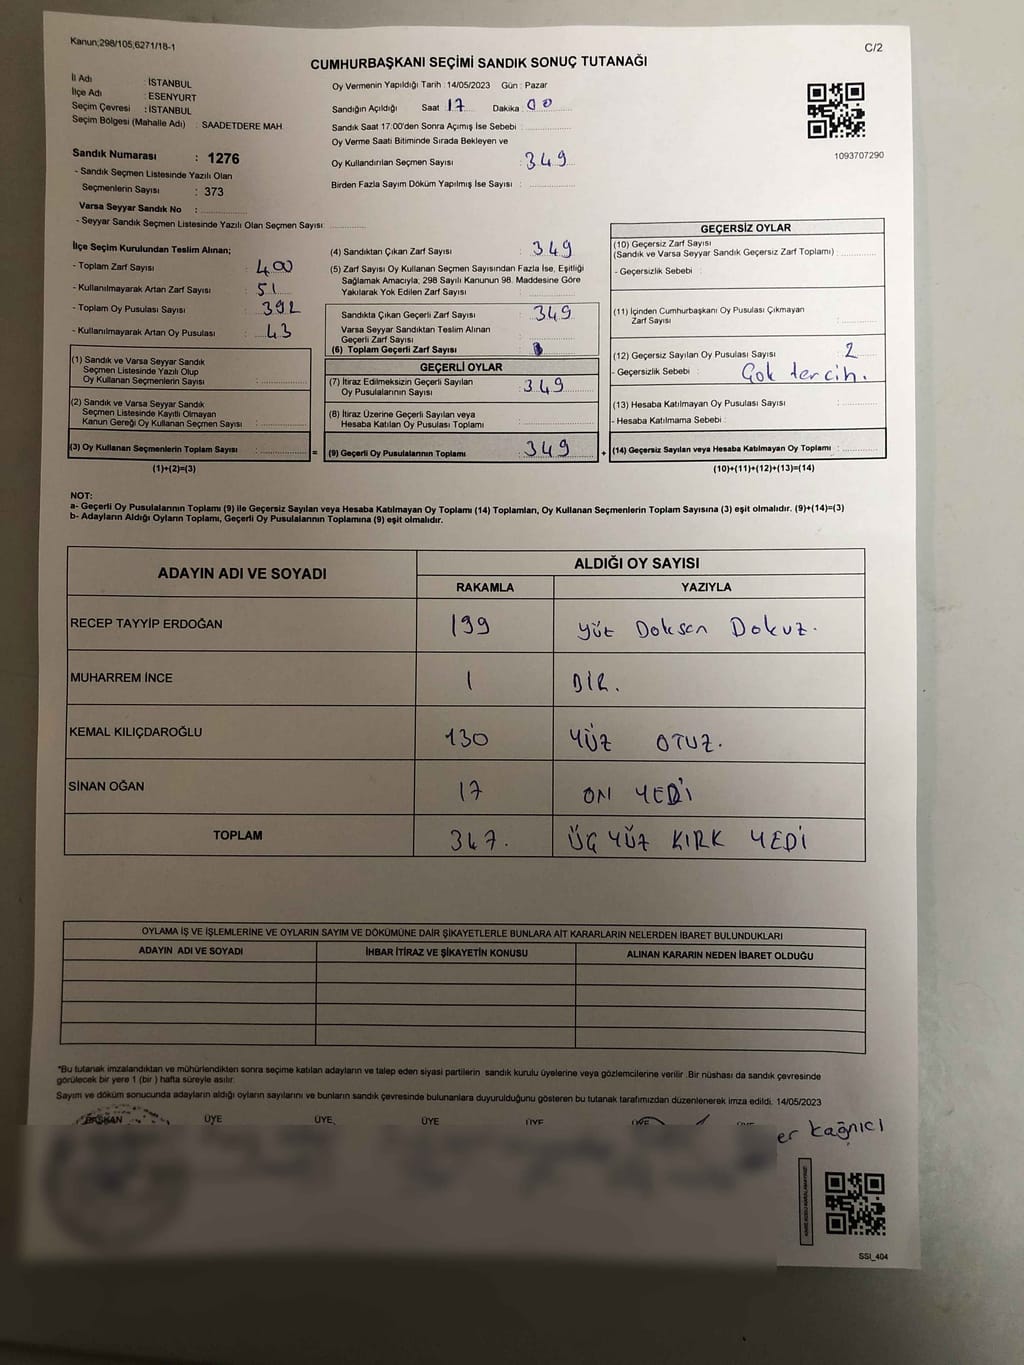 Kanun;298/105,6271/18-1
C/2
CUMHURBAŞKANI SEÇİMİ SANDIK SONUÇ TUTANAĞI
İl Adı : İSTANBUL
İlçe Adı : ESENYURT
Seçim Çevresi : İSTANBUL
Seçim Bölgesi (Mahalle Adı) : SAADETDERE MAH.
Sandık Numarası : 1276
- Sandık Seçmen Listesinde Yazılı Olan
Seçmenlerin Sayısı : 373
Varsa Seyyar Sandık No :
- Seyyar Sandık Seçmen Listesinde Yazılı Olan Seçmen Sayısı:
Oy Vermenin Yapıldığı Tarih : 14/05/2023 Gün : Pazar
Sandığın Açıldığı Saat 17 Dakika 00
Sandık Saat 17:00'den Sonra Açımış İse Sebebi :
Oy Verme Saati Bitiminde Sırada Bekleyen ve
Oy Kullandırılan Seçmen Sayısı : 349
Birden Fazla Sayım Döküm Yapılmış İse Sayısı :
1093707290
İlçe Seçim Kurulundan Teslim Alınan;
- Toplam Zarf Sayısı : 400
- Kullanılmayarak Artan Zarf Sayısı : 51
- Toplam Oy Pusulası Sayısı : 392
- Kullanılmayarak Artan Oy Pusulası : 43
(1) Sandık ve Varsa Seyyar Sandık
Seçmen Listesinde Yazılı Olup
Oy Kullanan Seçmenlerin Sayısı :
(2) Sandık ve Varsa Seyyar Sandık
Seçmen Listesinde Kayıtlı Olmayan
Kanun Gereği Oy Kullanan Seçmen Sayısı :
(3) Oy Kullanan Seçmenlerin Toplam Sayısı :
(1)+(2)=(3)
(4) Sandıktan Çıkan Zarf Sayısı : 349
(5) Zarf Sayısı Oy Kullanan Seçmen Sayısından Fazla İse, Eşitliği
Sağlamak Amacıyla, 298 Sayılı Kanunun 98. Maddesine Göre
Yakılarak Yok Edilen Zarf Sayısı :
Sandıkta Çıkan Geçerli Zarf Sayısı : 349
Varsa Seyyar Sandıktan Teslim Alınan
Geçerli Zarf Sayısı :
(6) Toplam Geçerli Zarf Sayısı :
GEÇERLİ OYLAR
(7) İtiraz Edilmeksizin Geçerli Sayılan
Oy Pusulalarının Sayısı : 349
(8) İtiraz Üzerine Geçerli Sayılan veya
Hesaba Katılan Oy Pusulası Toplamı :
= (9) Geçerli Oy Pusulalarının Toplamı : 349 +
GEÇERSİZ OYLAR
(10) Geçersiz Zarf Sayısı
(Sandık ve Varsa Seyyar Sandık Geçersiz Zarf Toplamı) :
- Geçersizlik Sebebi :
(11) İçinden Cumhurbaşkanı Oy Pusulası Çıkmayan
Zarf Sayısı :
(12) Geçersiz Sayılan Oy Pusulası Sayısı : 2
- Geçersizlik Sebebi : Çok tercih.
(13) Hesaba Katılmayan Oy Pusulası Sayısı :
- Hesaba Katılmama Sebebi :
(14) Geçersiz Sayılan veya Hesaba Katılmayan Oy Toplamı :
(10)+(11)+(12)+(13)=(14)
NOT:
a- Geçerli Oy Pusulalarının Toplamı (9) ile Geçersiz Sayılan veya Hesaba Katılmayan Oy Toplamı (14) Toplamları, Oy Kullanan Seçmenlerin Toplam Sayısına (3) eşit olmalıdır. (9)+(14)=(3)
b- Adayların Aldığı Oyların Toplamı, Geçerli Oy Pusulalarının Toplamına (9) eşit olmalıdır.
ADAYIN ADI VE SOYADI
ALDIĞI OY SAYISI
RAKAMLA YAZIYLA
RECEP TAYYİP ERDOĞAN 199 yüz Doksan Dokuz.
MUHARREM İNCE 1 BİR.
KEMAL KILIÇDAROĞLU 130 YÜZ OTUZ.
SİNAN OĞAN 17 ON YEDİ
TOPLAM 347. ÜÇ YÜZ KIRK YEDİ
OYLAMA İŞ VE İŞLEMLERİNE VE OYLARIN SAYIM VE DÖKÜMÜNE DAİR ŞİKAYETLERLE BUNLARA AİT KARARLARIN NELERDEN İBARET BULUNDUKLARI
ADAYIN ADI VE SOYADI İHBAR İTİRAZ VE ŞİKAYETİN KONUSU ALINAN KARARIN NEDEN İBARET OLDUĞU
*Bu tutanak imzalandıktan ve mühürlendikten sonra seçime katılan adayların ve talep eden siyasi partilerin sandık kurulu üyelerine veya gözlemcilerine verilir .Bir nüshası da sandık çevresinde
görülecek bir yere 1 (bir ) hafta süreyle asılır.
Sayım ve döküm sonucunda adayların aldığı oyların sayılarını ve bunların sandık çevresinde bulunanlara duyurulduğunu gösteren bu tutanak tarafımızdan düzenlenerek imza edildi. 14/05/2023
BAŞKAN ÜYE ÜYE ÜYE ÜYE ÜYE ÜYE
er kağnıcı
SSI_404